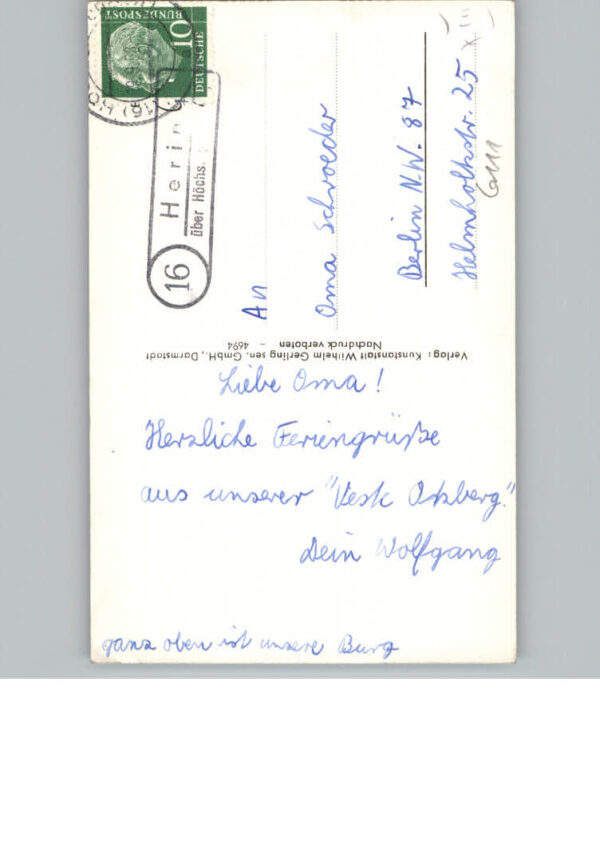 DEUTSCHE
BUNDESPOST
10
(16) HÖ
16
Herin
über Höchs
An
Oma Schroeder
Berlin N.W. 87
Helmholtzstr. 25
Verlag: Kunstanstalt Wilhelm Gerling sen. GmbH., Darmstadt
Nachdruck verboten - 4694
Liebe Oma!
Herzliche Feriengrüße
aus unserer "Veste Otzberg"
Dein Wolfgang
ganz oben ist unsere Burg